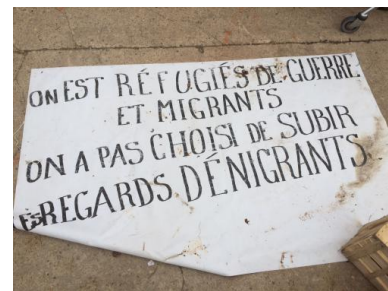 ON EST RÉFUGIÉS DE GUERRE
ET MIGRANTS
ON A PAS CHOISI DE SUBIR
REGARDS DÉNIGRANTS